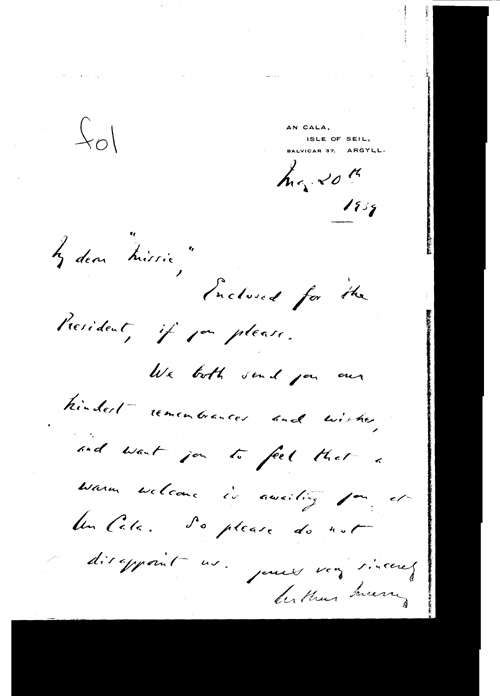 fol
AN CALA,
ISLE OF SEIL,
BALVICAR 37. ARGYLL.
May 20th
1939
My dear "Missie",
Enclosed for the
President, if you please.
We both send you our
kindest remembrances and wishes,
and want you to feel that a
warm welcome is awaiting you at
An Cala. So please do not
disappoint us. Yours very sincerely
Arthur Murray